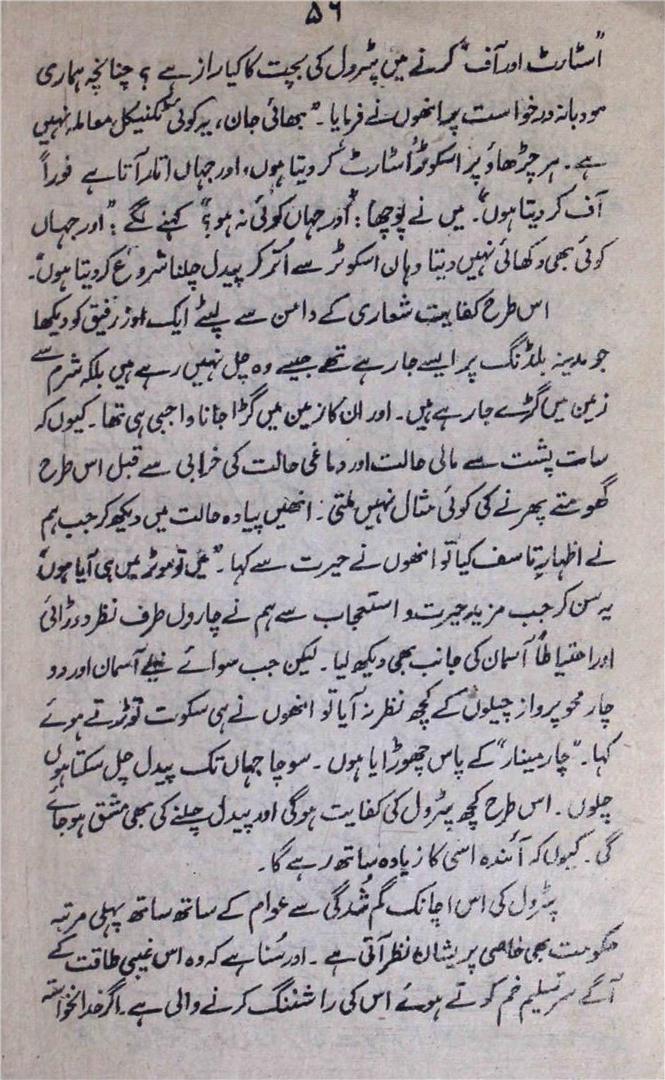 ۵۶
"اسٹارٹ اور آف" کرنے میں پٹرول کی بچت کا کیا راز ہے ؟ چنانچہ ہماری
مودبانہ درخواست پر انھوں نے فرمایا۔ "بھائی جان، یہ کوئی ٹکنیکل معاملہ نہیں
ہے۔ ہر چڑھاؤ پر اسکوٹر اسٹارٹ کر دیتا ہوں، اور جہاں اتار آتا ہے فوراً
آف کر دیتا ہوں"۔ میں نے پوچھا : "اور جہاں کوئی نہ ہو؟" کہنے لگے : "اور جہاں
کوئی بھی دکھائی نہیں دیتا وہاں اسکوٹر سے اُتر کر پیدل چلنا شروع کر دیتا ہوں"۔
اس طرح کفایت شعاری کے دامن سے لپٹے ایک اور رفیق کو دیکھا
جو مدینہ بلڈنگ پر ایسے جا رہے تھے جیسے وہ چل نہیں رہے ہیں بلکہ شرم سے
زمین میں گڑے جا رہے ہیں۔ اور ان کا زمین میں گڑا جانا واجبی ہی تھا۔ کیوں کہ
سات پشت سے مالی حالت اور دماغی حالت کی خرابی سے قبل اس طرح
گھومتے پھرنے کی کوئی مثال نہیں ملتی۔ انھیں پیادہ حالت میں دیکھ کر جب ہم
نے اظہارِ تاسف کیا تو انھوں نے حیرت سے کہا۔ "میں تو موٹر میں ہی آیا ہوں"
یہ سن کر جب مزید حیرت و استعجاب سے ہم نے چاروں طرف نظر دوڑائی
اور احتیاطاً آسمان کی جانب بھی دیکھ لیا۔ لیکن جب سوائے نیلے آسمان اور دو
چار محو پرواز چیلوں کے کچھ نظر نہ آیا تو انھوں نے ہی سکوت توڑتے ہوئے
کہا۔ "چار مینار" کے پاس چھوڑ آیا ہوں۔ سوچا جہاں تک پیدل چل سکتا ہوں
چلوں۔ اس طرح کچھ پٹرول کی کفایت ہوگی اور پیدل چلنے کی بھی مشق ہو جائے
گی۔ کیوں کہ آئندہ اسی کا زیادہ ساتھ رہے گا۔
پٹرول کی اس اچانک گم شُدگی سے عوام کے ساتھ ساتھ پہلی مرتبہ
حکومت بھی خاصی پریشان نظر آتی ہے۔ اور سُنا ہے کہ وہ اس غیبی طاقت کے
آگے سر تسلیم خم کرتے ہوئے اس کی راشننگ کرنے والی ہے۔ اگر خدانخواستہ